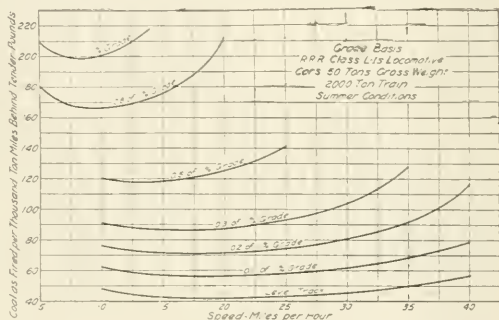 Coal as Fired per Thousand Ton Miles Behind Tender-Pounds
220
200
180
160
140
120
100
80
60
40
Grade Basis
P.R.R. Class L-1s Locomotive
Cars 50 Tons Gross Weight
2000 Ton Train
Summer Conditions
% Grade
% Grade
.05 of % Grade
% Grade
0.2 of % Grade
of % Grade
Level Track
5
10
15
20
25
30
35
40
Speed-Miles per Hour